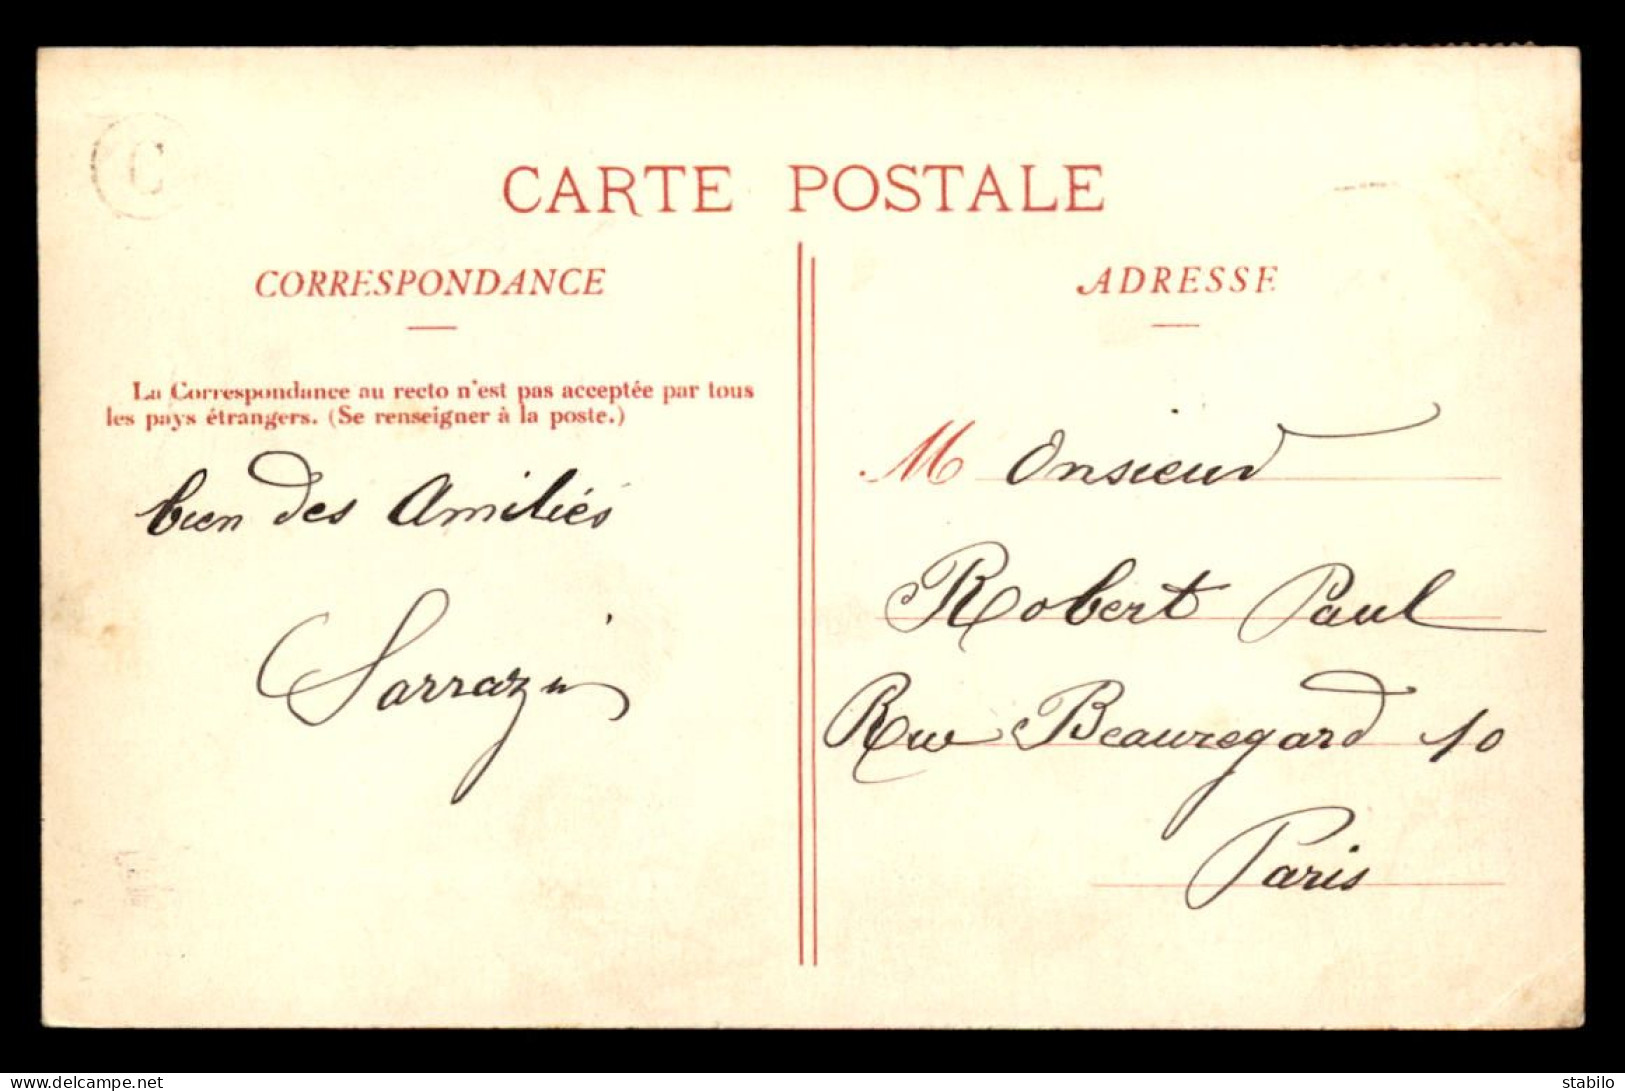 C
CARTE POSTALE
CORRESPONDANCE
La Correspondance au recto n'est pas acceptée par tous
les pays étrangers. (Se renseigner à la poste.)
bien des Amitiés
Sarrazin
ADRESSE
Monsieur
Robert Paul
Rue Beauregard 10
Paris
delcampe.net
stabilo